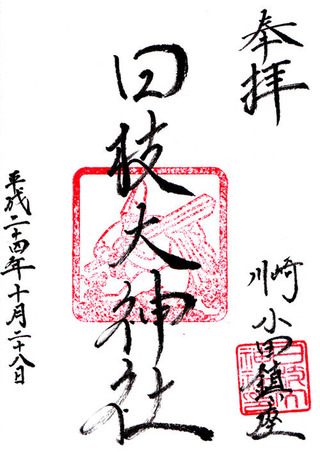 奉拝
川崎 小田鎮座
日枝大神社
平成二十四年十月二十八日